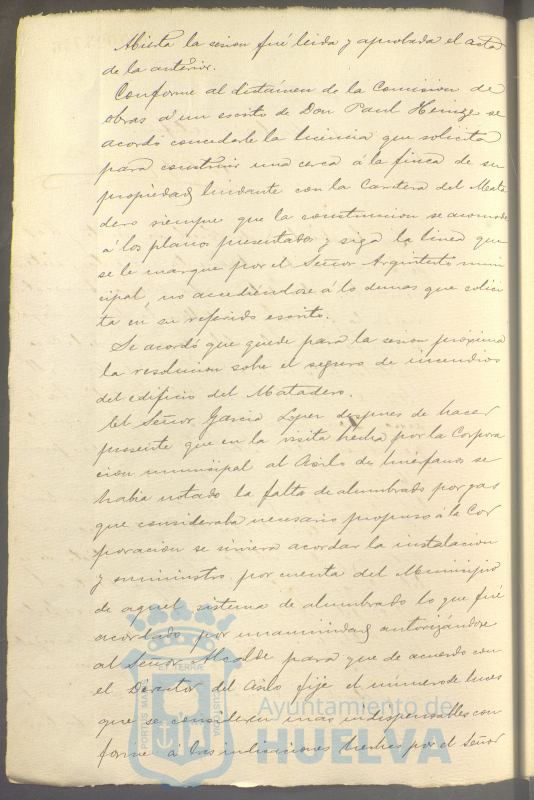 Abierta la sesion fué leida y aprobada el acta
de la anterior.
Conforme al dictámen de la Comision de
obras á un escrito de Don Paul Heinze se
acordó concederle la licencia que solicita
para construir una cerca á la finca de su
propiedad lindante con la Carretera del Mata
dero siempre que la construccion se acomode
á los planos presentados y siga la linea que
se le marque por el Señor Arquitecto muni
cipal, no accediéndose á lo demas que solici
ta en su referido escrito.
Se acordó que quede para la sesion próxima
la resolucion sobre el seguro de incendios
del edificio del Matadero.
El Señor Garcia Lopez despues de hacer
presente que en la visita hecha por la Corpora
cion municipal al Asilo de huérfanos se
habia notado la falta de alumbrado por gas
que consideraba necesario propuso á la Cor
poracion se sirviera acordar la instalacion
y suministro por cuenta del Municipio
de aquel sistema de alumbrado lo que fué
acordado por unanimidad autorizándose
al Señor Alcalde para que de acuerdo con
el Director del Asilo fije el número de luces
que se consideren mas indispensables con
forme á las indicaciones hechas por el Señor
PORTUS MARIS
ET TERRAE
CUSTODIA
Ayuntamiento de
HUELVA